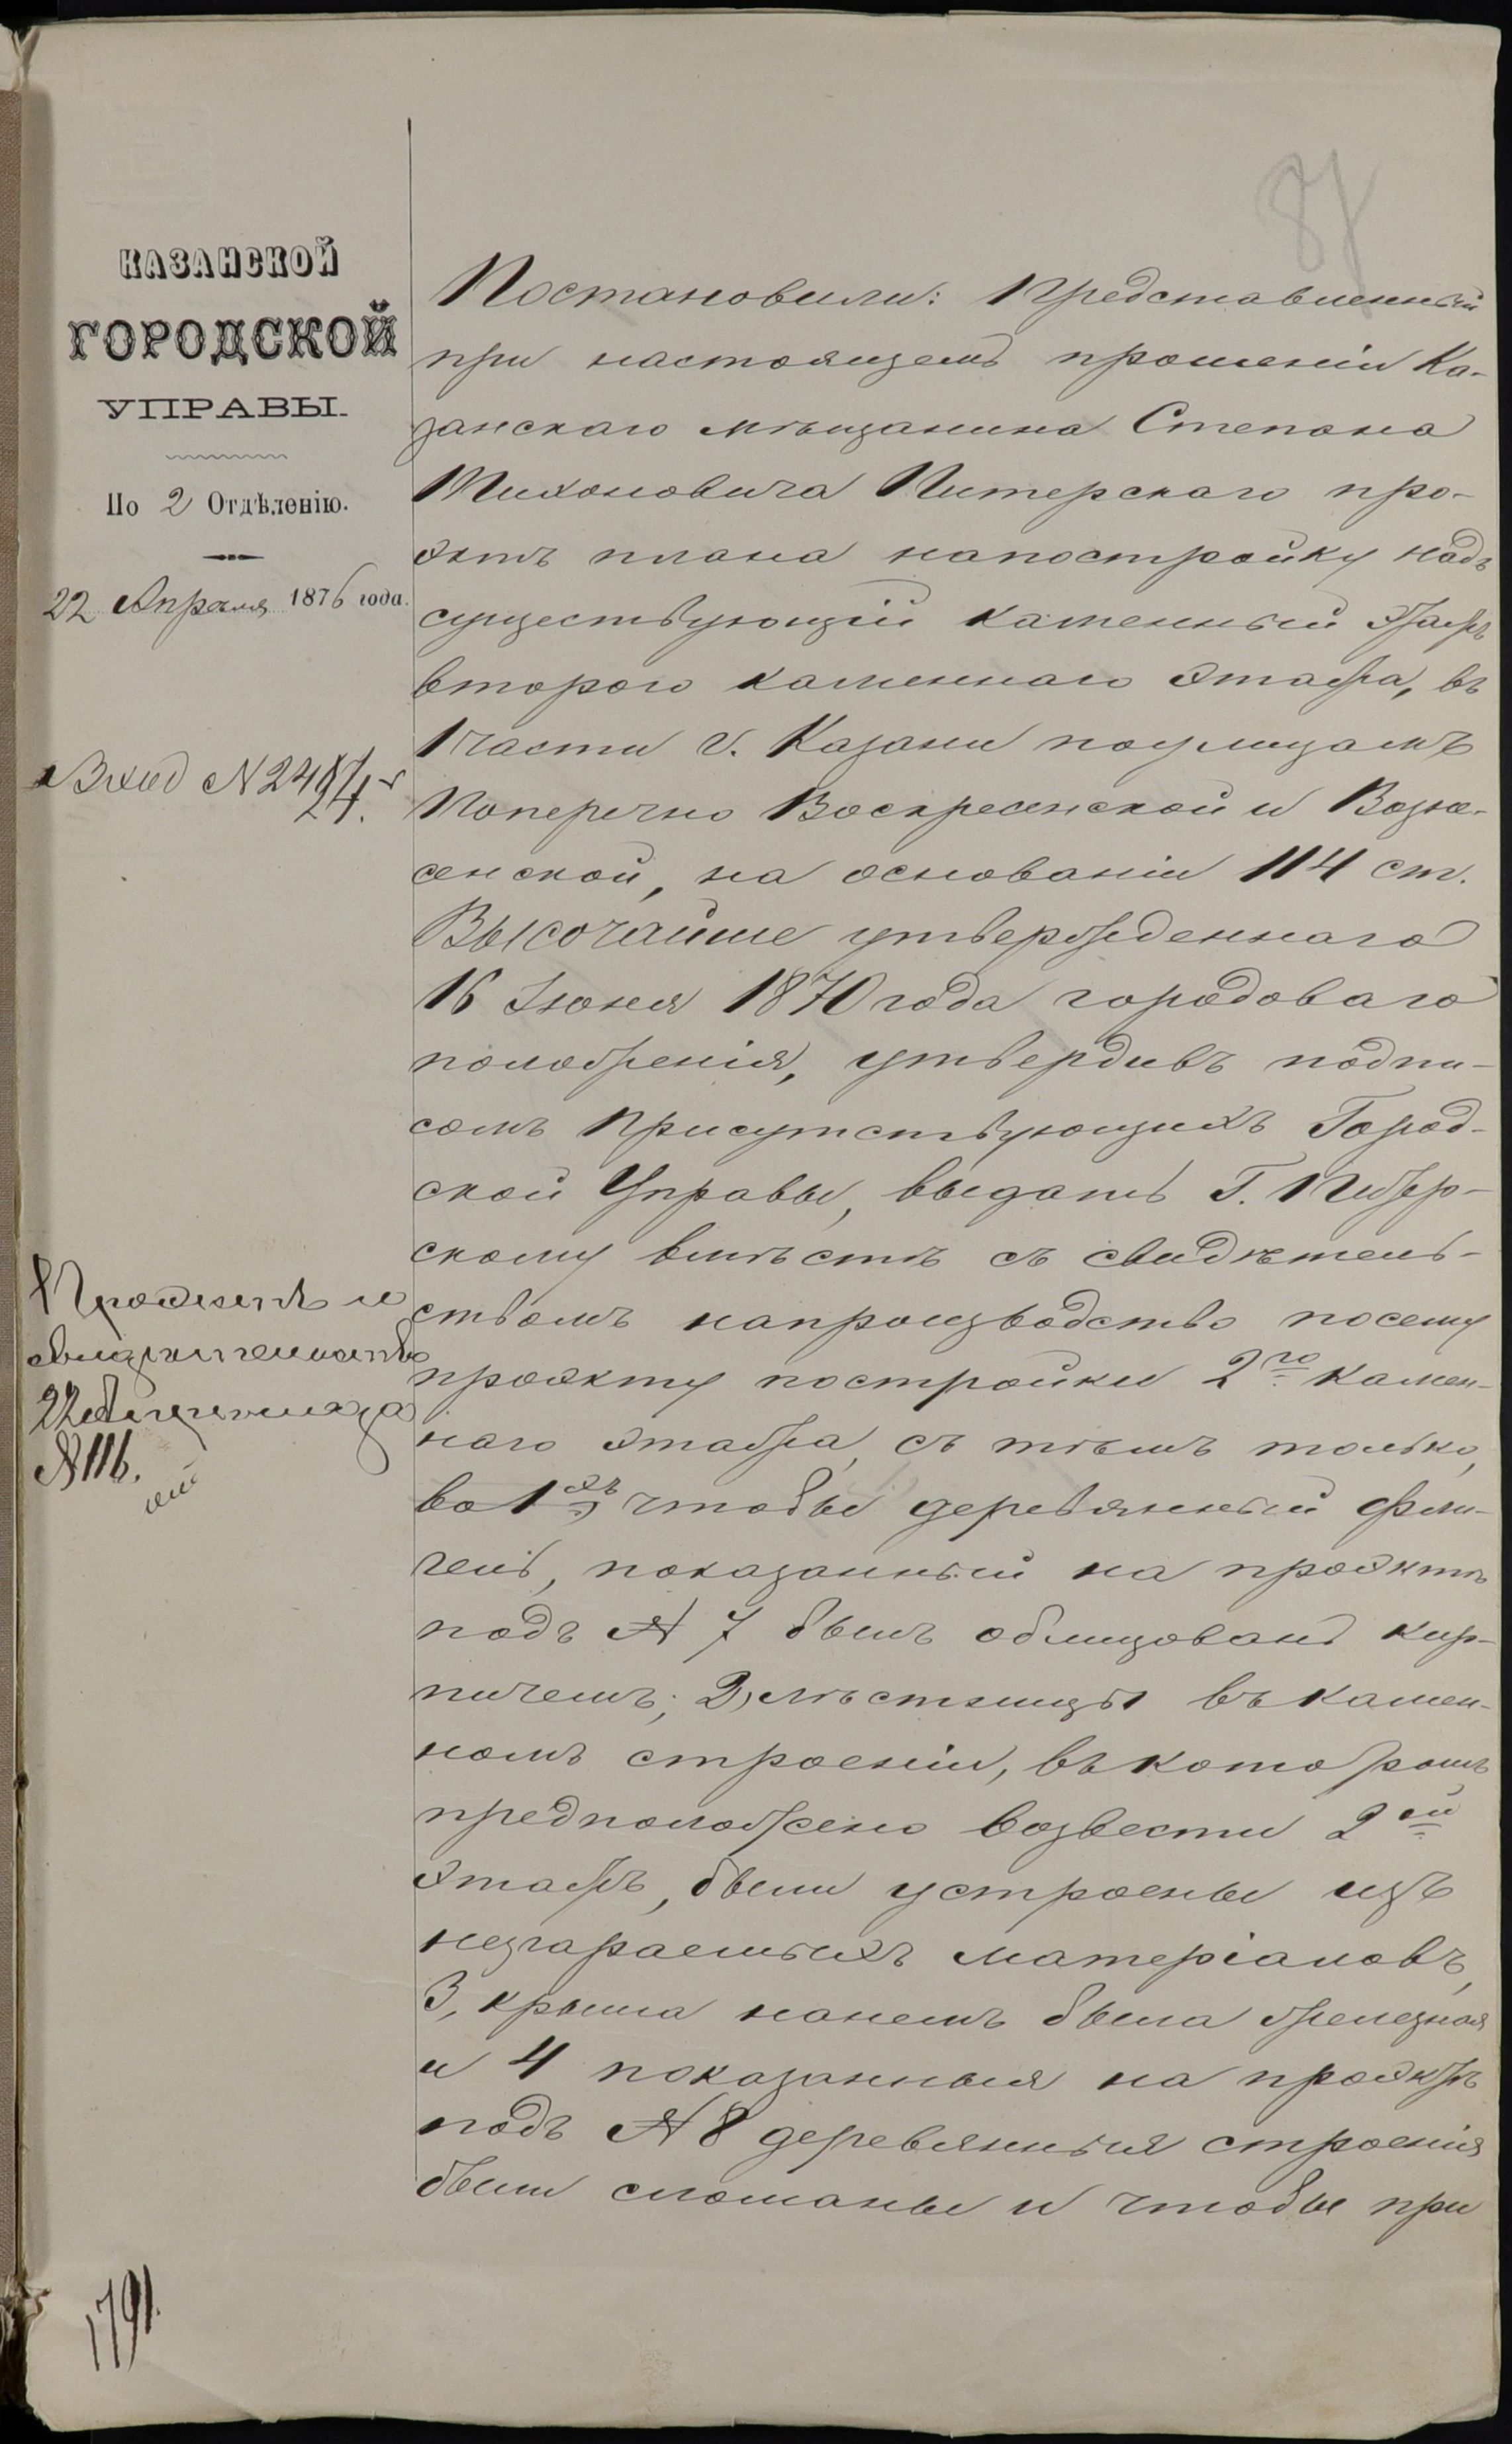 КАЗАНСКОЙ
ГОРОДСКОЙ
УПРАВЫ.
По 2 Отдѣленію.
22 Апрѣля 1876 года.
Вход №
Проэктъ и
свидѣтельство
22 Апрѣля
№ 116.
1791.
Постановили: Представленный
при настоящемъ прошеніи Ка-
занскаго мѣщанина Степана
Тихоновича Питерскаго про-
эктъ плана напостройку надъ
существующій каменный этажъ
втораго каменнаго этажа, въ
1 части г. Казани поулицамъ
Поперечно Воскресенской и Возне-
сенской, на основаніи 114 ст.
Высочайше утвержденнаго
16 Іюня 1870 года городоваго
положенія, утвердивъ подпи-
сомъ Присутствующихъ Город-
ской Управы, выдать Г. Питер-
скому вмѣстѣ съ свидѣтель-
ствомъ напроизводство посему
проэкту постройки 2го камен-
наго этажа, съ тѣмъ только,
во 1хъ чтобы деревянный фли-
гель, показанный на проэктѣ
подъ № 7 былъ облицованъ кир-
пичемъ; 2, лѣстницы въ камен-
номъ строеніи, въ которомъ
предположено возвести 2ой
этажъ, были устроены изъ
незгараемыхъ матеріаловъ,
3, крыша нанемъ была железная
и 4 показанныя на проэктѣ
подъ № 8 деревянныя строенія
были сломаны и чтобы при